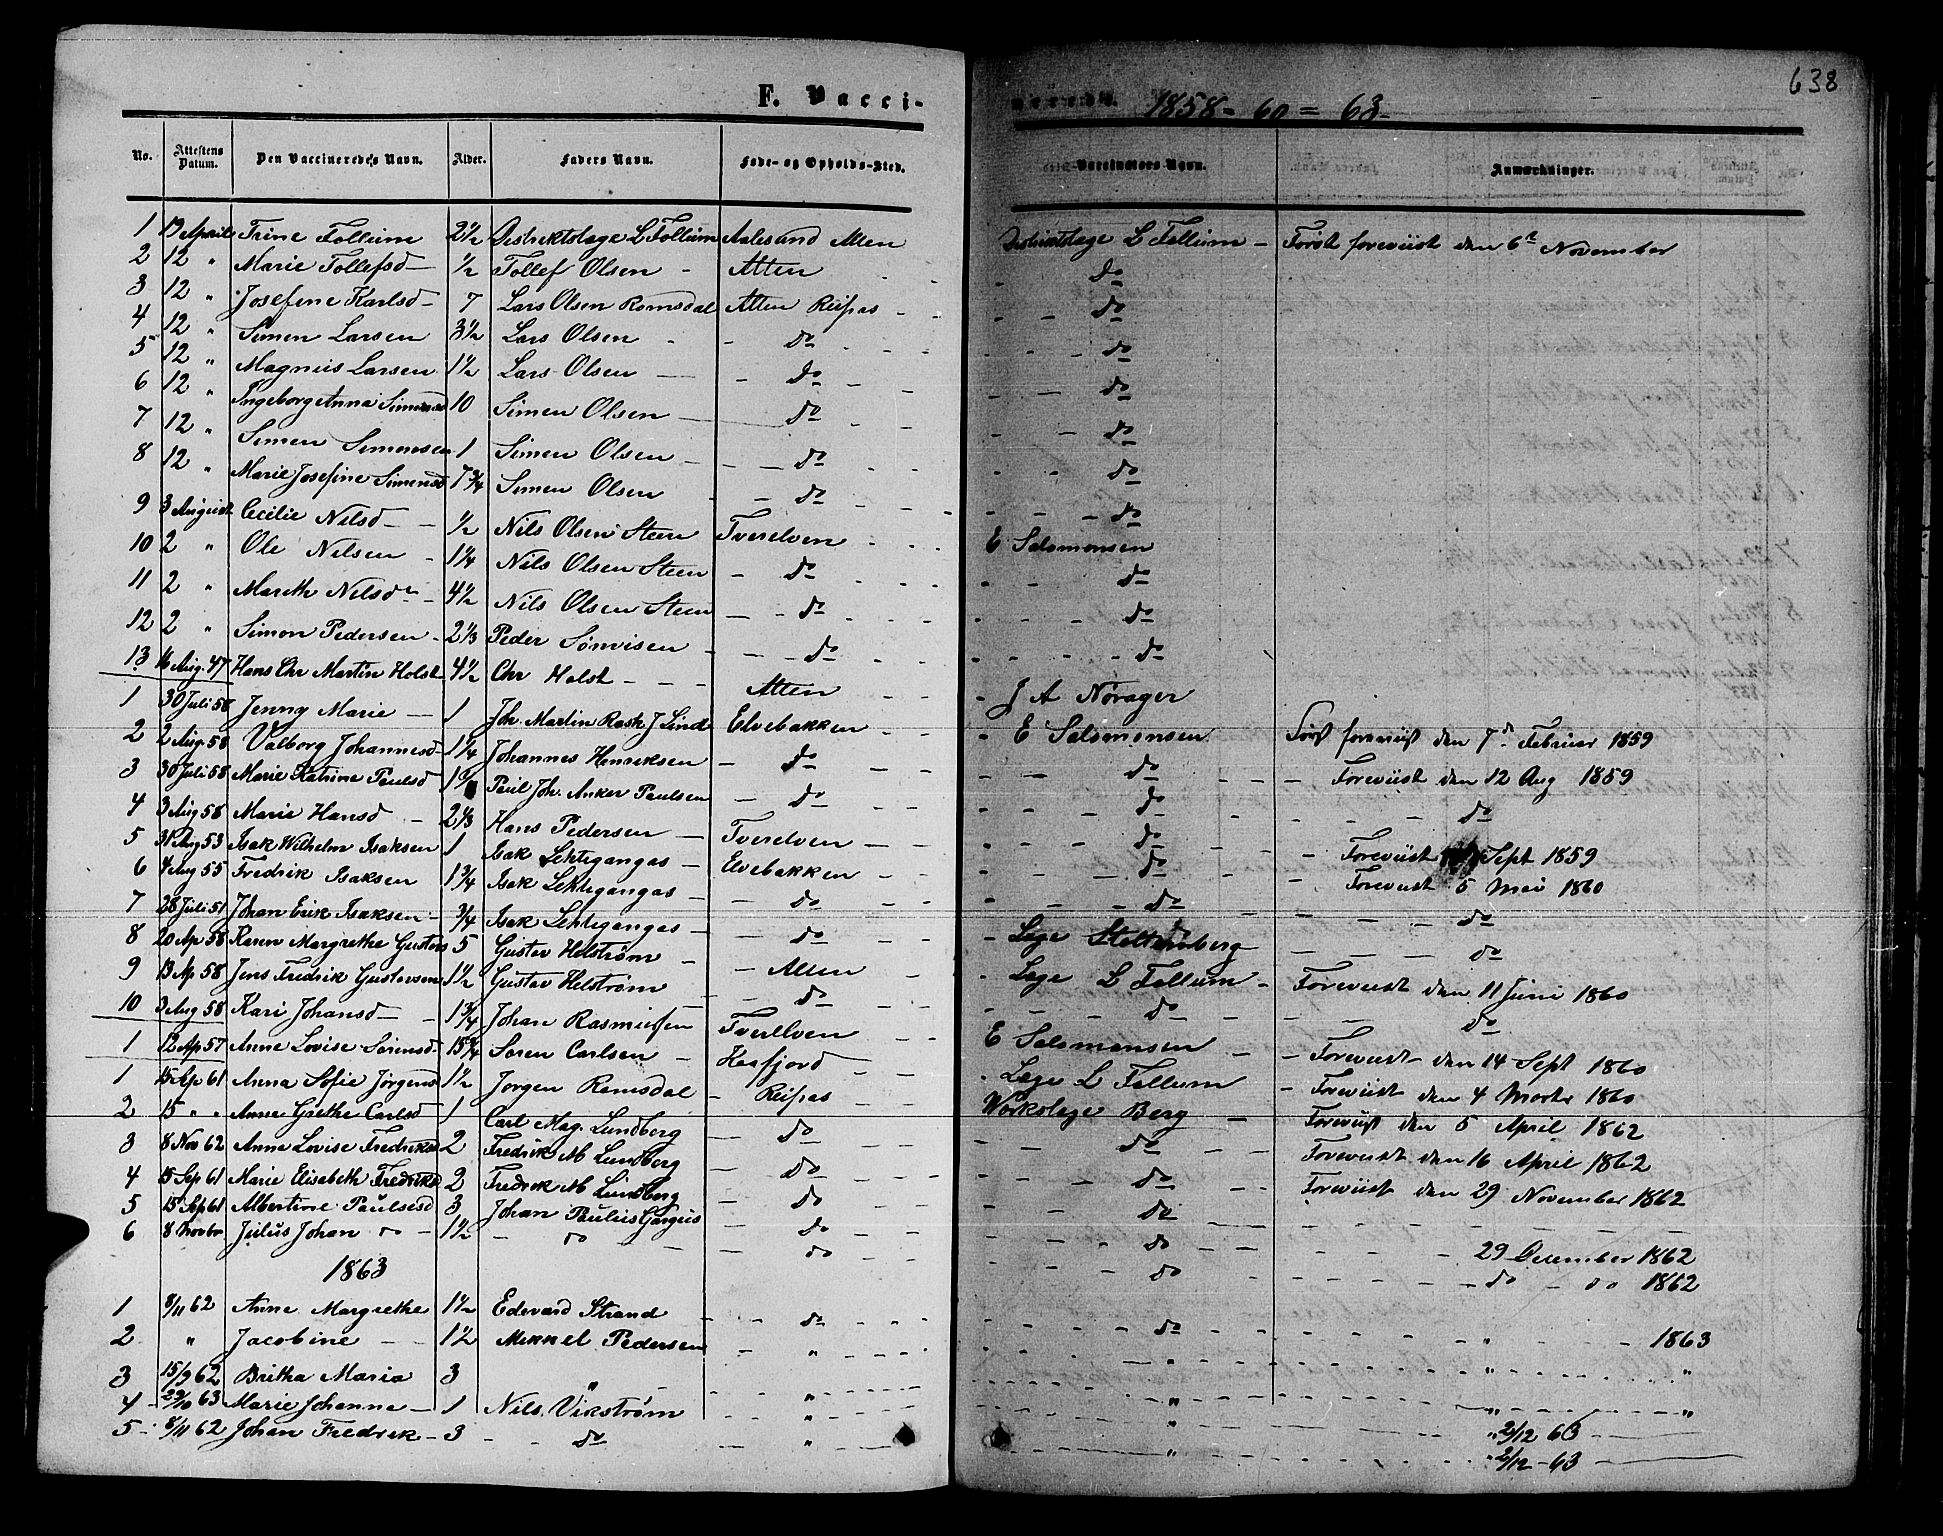 638
F. Vacci-
nerede. 1858-60=63-
No. Attestens Datum. Den Vaccineredes Navn. Alder. Faders Navn. Føde- og Opholds-Sted. Vaccinators Navn. Anmærkninger.
1 12 April Trine Follum 2½ Distriktslæge L Follum Aalesund Alten Distriktslæge L Follum - Først forevist den 6te November
2 12 " Marie Tollefsd - ½ Tollef Olsen - Alten do
3 12 " Josefine Karlsd - 7 Lars Olsen Romsdal Alten Reipas - - do
4 12 " Simen Larsen 3½ Lars Olsen - do - do
5 12 " Magnus Larsen 1½ Lars Olsen - do - do
6 12 " Ingeborg Anna Simensd 10 Simen Olsen - do - do
7 12 " Simen Simensen 1 Simen Olsen - do - do
8 12 " Marie Josefine Simensd 7¾ Simen Olsen - do - do
9 3 August Cecilie Nilsd - ½ Nils Olsen Steen Tverelven - E Salomonsen
10 2 " Ole Nilsen - 1¼ Nils Olsen Steen - do - do
11 2 " Mareth Nilsdr - 4½ Nils Olsen Steen - do - do
12 2 " Simon Pedersen - 2⅓ Peder - do - do
13 16 Aug. 47 Hans Chr Martin Holst 4½ Chr Holst - Alten - J A Nørager
1 30 Juli 58 Jenny Marie - 1 Joh. Martin Rash J Lind Elvebakken - E Salomonsen Først forevist den 7d Februar 1859
2 2 Aug. 58 Valborg Johannesd 1¼ Johannes Henriksen - do - do - Forevist den 12 Aug 1859
3 30 Juli 58 Marie Katrine Paulsd Paul Joh. Anker Paulsen - do - do - do
4 3 Aug 58 Marie Hansd - 2⅓ Hans Pedersen - Tverelven - do - Forevist Sept 1859
5 31 Aug 53 Isak Wilhelm Isaksen 1 Isak Lehtigangas - Elvebakken - do - Forevist 5 Mai 1860
6 4 Aug 55 Fredrik Isaksen 1¾ Isak Lehtigangas - do - do - do
7 28 Juli 51 Johan Erik Isaksen - ¾ Isak Lehtigangas - do - do - do
8 20 Ap 58 Karen Margrethe Gustavs 5 Gustav Helstrøm - Alten - Læge L Follum - Forevist den 11 Juni 1860
9 13 Ap 58 Jens Fredrik Gustavsen 1½ Gustav Helstrøm - do - do - do
10 3 Aug 58 Kari Johansd - 1¾ Johan Rasmussen Tverelven E Salomonsen - Forevist den 14 Sept 1860
1 12 Ap 57 Anne Lovise Sørensd 15¾ Søren Carlsen - - Læge L Follum - Forevist den 4 Marts 1860
1 15 Sep 61 Anna Sofie Jørgens 1½ Jørgen Romsdal - Reipas - Værkslæge Berg - Forevist den 5 April 1862
2 15 " " Anne Grethe Carlsd 1 Carl Mag. Lundberg - do - do - Forevist den 16 April 1862
3 8 Nov 62 Anne Lovise Fredriksd 2 Fredrik M Lundberg - do - do Forevist den 29 November 1862
4 15 Sep 61 Marie Elisabeth Fredriksd 2 Fredrik M Lundberg - do - do - - -
5 15 Sep 61 Albertine Paulsesd 3 Johan Paulus - do - do - 29 December 1862
6 8 Julius Johan do - 1½ - do - do - do - do - do 1862
1863
1 8/11 62 Anne Margrethe 1½ Edevard Strand - do - do - " - 1863
2 " Jacobine - - 1½ Mikkel Pedersen - " - " - " - "
3 15/9 62 Britha Maria 3 " - " - " - " - "
4 - 29/10 63 Marie Johanne - 1 Nils Vikstrøm - " - " - " 2/12 63 -
5 - 8/11 62 Johan Fredrik - 3 - do - " - " - " 2/12 - 63 -